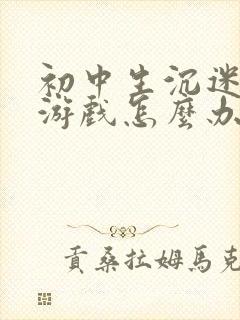 初中生沉迷
游戏怎麼办
貢桑拉姆馬克